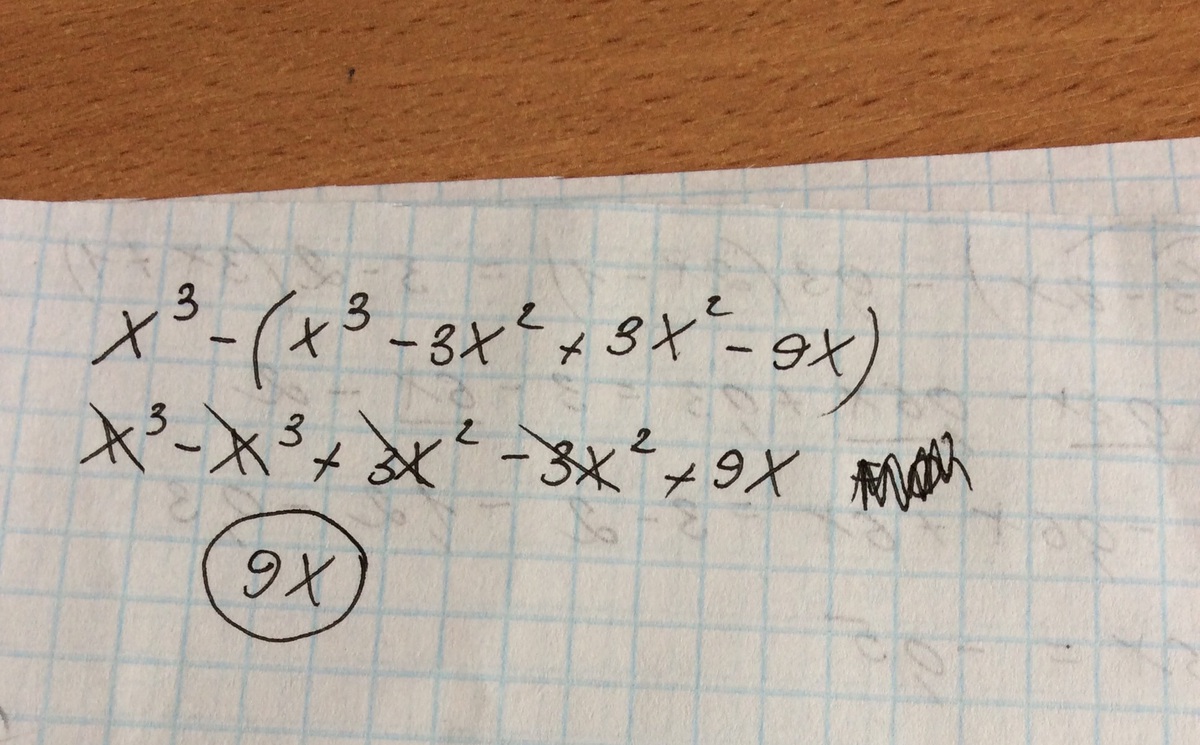 x³ - (x³ - 3x² + 3x² - 9x)
x³ - x³ + 3x² - 3x² + 9x
9x